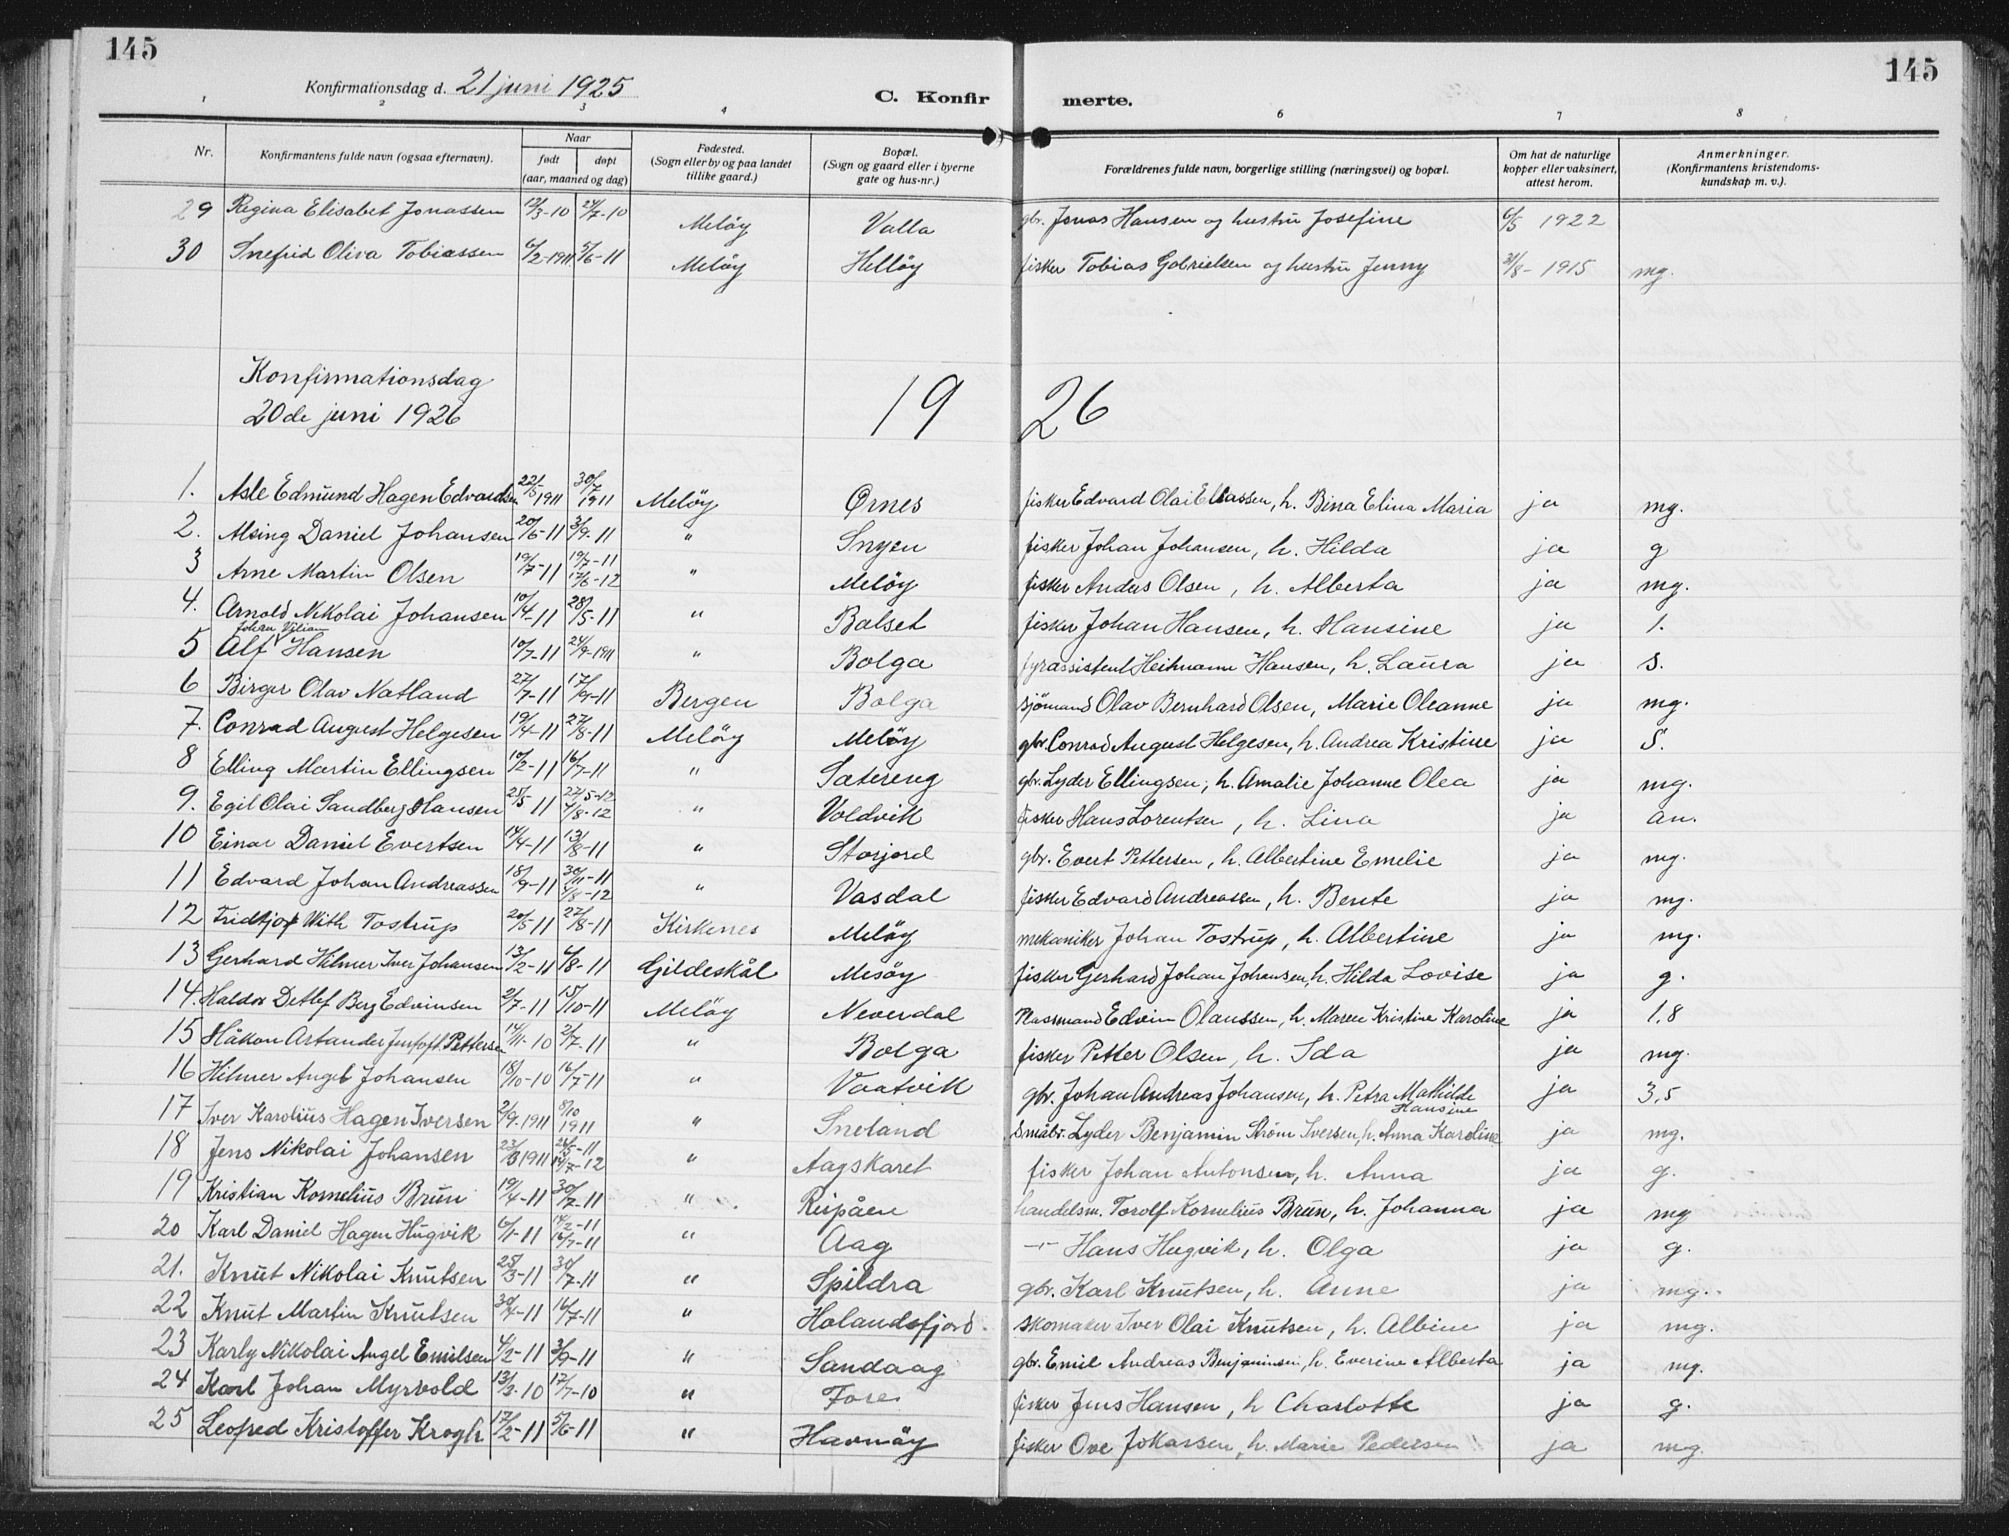 145
145
Konfirmationsdag d. 21 juni 1925
C. Konfir merte.
1 2 3 4 6 7 8
Nr. Konfirmantens fulde navn (ogsaa efternavn). Naar født døpt (aar, maaned og dag) Fødested. (Sogn eller by og paa landet tillike gaard.) Bopæl. (Sogn og gaard eller i byerne gate og hus-nr.) Forældrenes fulde navn, borgerlige stilling (næringsvei) og bopæl. Om hat de naturlige kopper eller vaksinert, attest herom. Anmerkninger. (Konfirmantens kristendoms-kundskap m. v.).
29 Regina Elisabet Jonassen 12/3-10 24/7-10 Meløy Valla gbr. Jonas Hansen og hustru Josefine 6/5 1922
30 Snefrid Oliva Tobiassen 6/2-1911 5/6-11 Meløy Helløy fisker Tobias Gabrielsen og hustru Jenny 31/8-1915 mg.
Konfirmationsdag
20de juni 1926
19 26
1. Asle Edmund Hagen Edvardsen 22/5 1911 30/7 1911 Meløy Ørnes fisker Edvard Olai Eliassen, h. Bina Elina Maria ja mg.
2. Alsing Daniel Johansen 20/6-11 3/9-11 " Snyen fisker Johan Johansen, h. Hilda ja g
3 Arne Martin Olsen 19/7-11 19/7-11 17/6-12 " Meløy fisker Anders Olsen, h. Alberta ja mg.
4. Arnold Nikolai Johansen 10/4-11 28/5-11 " Balset fisker Johan Hansen, h. Hansine ja 1.
5 Alf Johan Viljam Hansen 10/7-11 24/9-1911 " Bolga fyrassistent Heitmann Hansen, h. Laura ja s.
6 Birger Olav Natland 27/7-11 17/9-11 Bergen Bolga sjømand Olav Bernhard Olsen, Marie Oleanne ja mg.
7. Conrad August Helgesen 19/4-11 27/8-11 Meløy Meløy gbr. Conrad August Helgesen, h. Andrea Kristine ja S.
8 Elling Martin Ellingsen 10/2-11 16/7-11 " Sætereng gbr. Lyder Ellingsen, h. Amalie Johanne Olea ja mg.
9. Egil Olai Sandberg Hansen 25/5 11 27/5-12 4/8-12 " Voldvik fisker Hans Lorentsen, h. Lina ja an.
10 Einar Daniel Evertsen 14/4-11 13/8-11 " Storjord gbr. Evert Pettersen, h. Albertine Emelie ja mg.
11 Edvard Johan Andreassen 18/9-11 30/11-11 4/8-12 " Vasdal fisker Edvard Andreassen, h. Bente ja mg.
12 Fridtjof With Tostrup 20/5-11 27/8-11 Kirkenes Meløy mekaniker Johan Tostrup, h. Albertine ja mg.
13 Gerhard Hilmer Iver Johansen 13/2-11 6/8-11 Gildeskål Mesøy fisker Gerhard Johan Johansen, h. Hilda Lovise ja g.
14. Haldor Detlef Berg Edvinsen 2/7-11 15/10-11 Meløy Neverdal Massmand Edvin Olaussen, h. Maren Kristine Karoline ja 1.8
15 Håkon Astander Justoft. Pettersen 14/11-10 2/7-11 " Bolga fisker Petter Olsen, h. Ida ja mg.
16 Hilmer Angel Johansen 18/10-10 16/7-11 " Vaatvik gbr. Johan Andreas Johansen, h. Petra Mathilde Hansine ja 3,5
17 Iver Karolius Hagen Iversen 2/9-1911 8/10 1911 " Sneland småbr. Lyder Benjamin Strøm Iversen, h. Anna Karoline ja mg.
18 Jens Nikolai Johansen 23/3 1911 26/3-11 14/7-12 " Aagskaret fisker Johan Antonsen, h. Anna ja g.
19 Kristian Kornelius Brun 19/4-11 30/7-11 " Reipåen handelsm. Torolf Kornelius Brun, h. Johanna ja mg
20 Karl Daniel Hagen Hugvik 6/1-11 14/2-11 16/7-11 " Aag -"- Hans Hugvik, h. Olga ja g.
21. Knut Nikolai Knutsen 25/3-11 30/7-11 " Spildra gbr. Karl Knutsen, h. Anne ja mg.
22 Knut Martin Knutsen 30/4-11 16/7-11 " Holandsfjord skomaker Iver Olai Knutsen, h. Albine ja mg.
23 Karly Nikolai Angel Emilsen 4/2-11 3/9-11 " Sandaag gbr. Emil Andreas Benjaminsen, h. Everine Alberta ja mg.
24 Karl Johan Myrvold 13/3-10 17/7-10 " Fore fisker Jens Hansen, h Charlotte ja g.
25 Leofred Kristoffer Krogh 17/2-11 5/6-11 " Havnøy fisker Ove Johansen, h. Marie Pedersen ja mg.